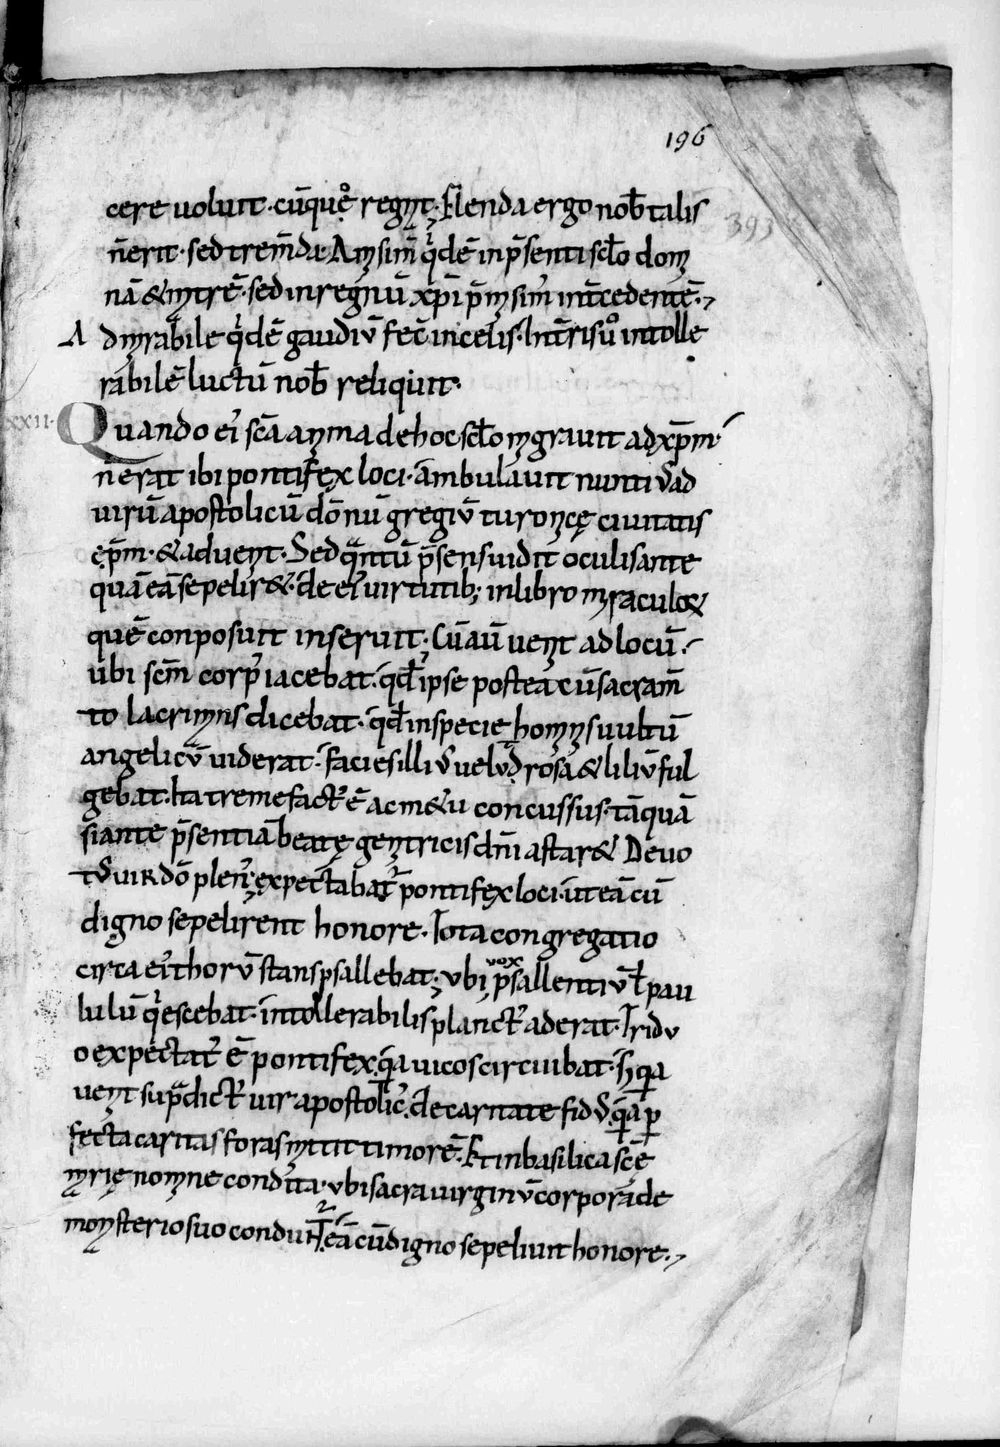 196
393
cere uoluit· cūq̄ue᷒ regn̄t· Flenda ergo nob̄ talis
n̄ erit· sed trem̄da· Amisim᷒ q̇dē in p̄senti sc̄lo dom
nā & mtrē· sed in regnū xp̄i p̄misim᷒ int̄cedentē·,
Admirabile q̇dē gaudiū fec̄ in celis· Int̄risu᷒ intolle
rabilē luctū nob̄ reliquit·
xxii· Quando ei᷒ sc̄a anima de hoc sc̄lo migrauit ad xp̄m·
n̄ erat ibi pontifex loci· ambulauit nuntiu᷒ ad
uirū apostolicū dōnū gregiū turonicę ciuitatis
ęp̄m· & aduenit· Sed quantū p̄sens uidit oculis ante
quā eā sepelir&· de ei᷒ uirtutib; in libro miraculo&
quē conposuit inseruit· Cū aū uenit ad locū·
ubi sc̄m corp᷒ iacebat· qd̄ ipse postea cū sacram̄
to lacrimis dicebat· qd̄ in specie hominis uultū
angelicū uiderat· facies illiu᷒ uelud rosa & liliū ful
gebat· Ita tremefact᷒ ē ac m&u concussus· tāquā
si ante p̄sentia beatę genitricis dn̄i astar& Deuo
tu᷒ uir dō plen᷒ expectabat᷒ pontifex loci· ut eā cū
digno sepelirent honore· Tota congregatio
circa ei᷒ thorū stans psallebat· vbi vox psallentiū t̄ pau
lulū q̇escebat· intollerabilis planct᷒ aderat· Tridu
o expectat᷒ ē pontifex· qa uicos circuibat· H qa
uenit sup̄dict᷒ uir apostolic᷒· de caritate fidu᷒· qa p
fecta caritas foras mittit timorē· Et in basilica scē
mrię nomine condita· vbi sacra uirginū corpora de
monysterio suo condunt᷒· eā cū digno sepeliuit honore·,